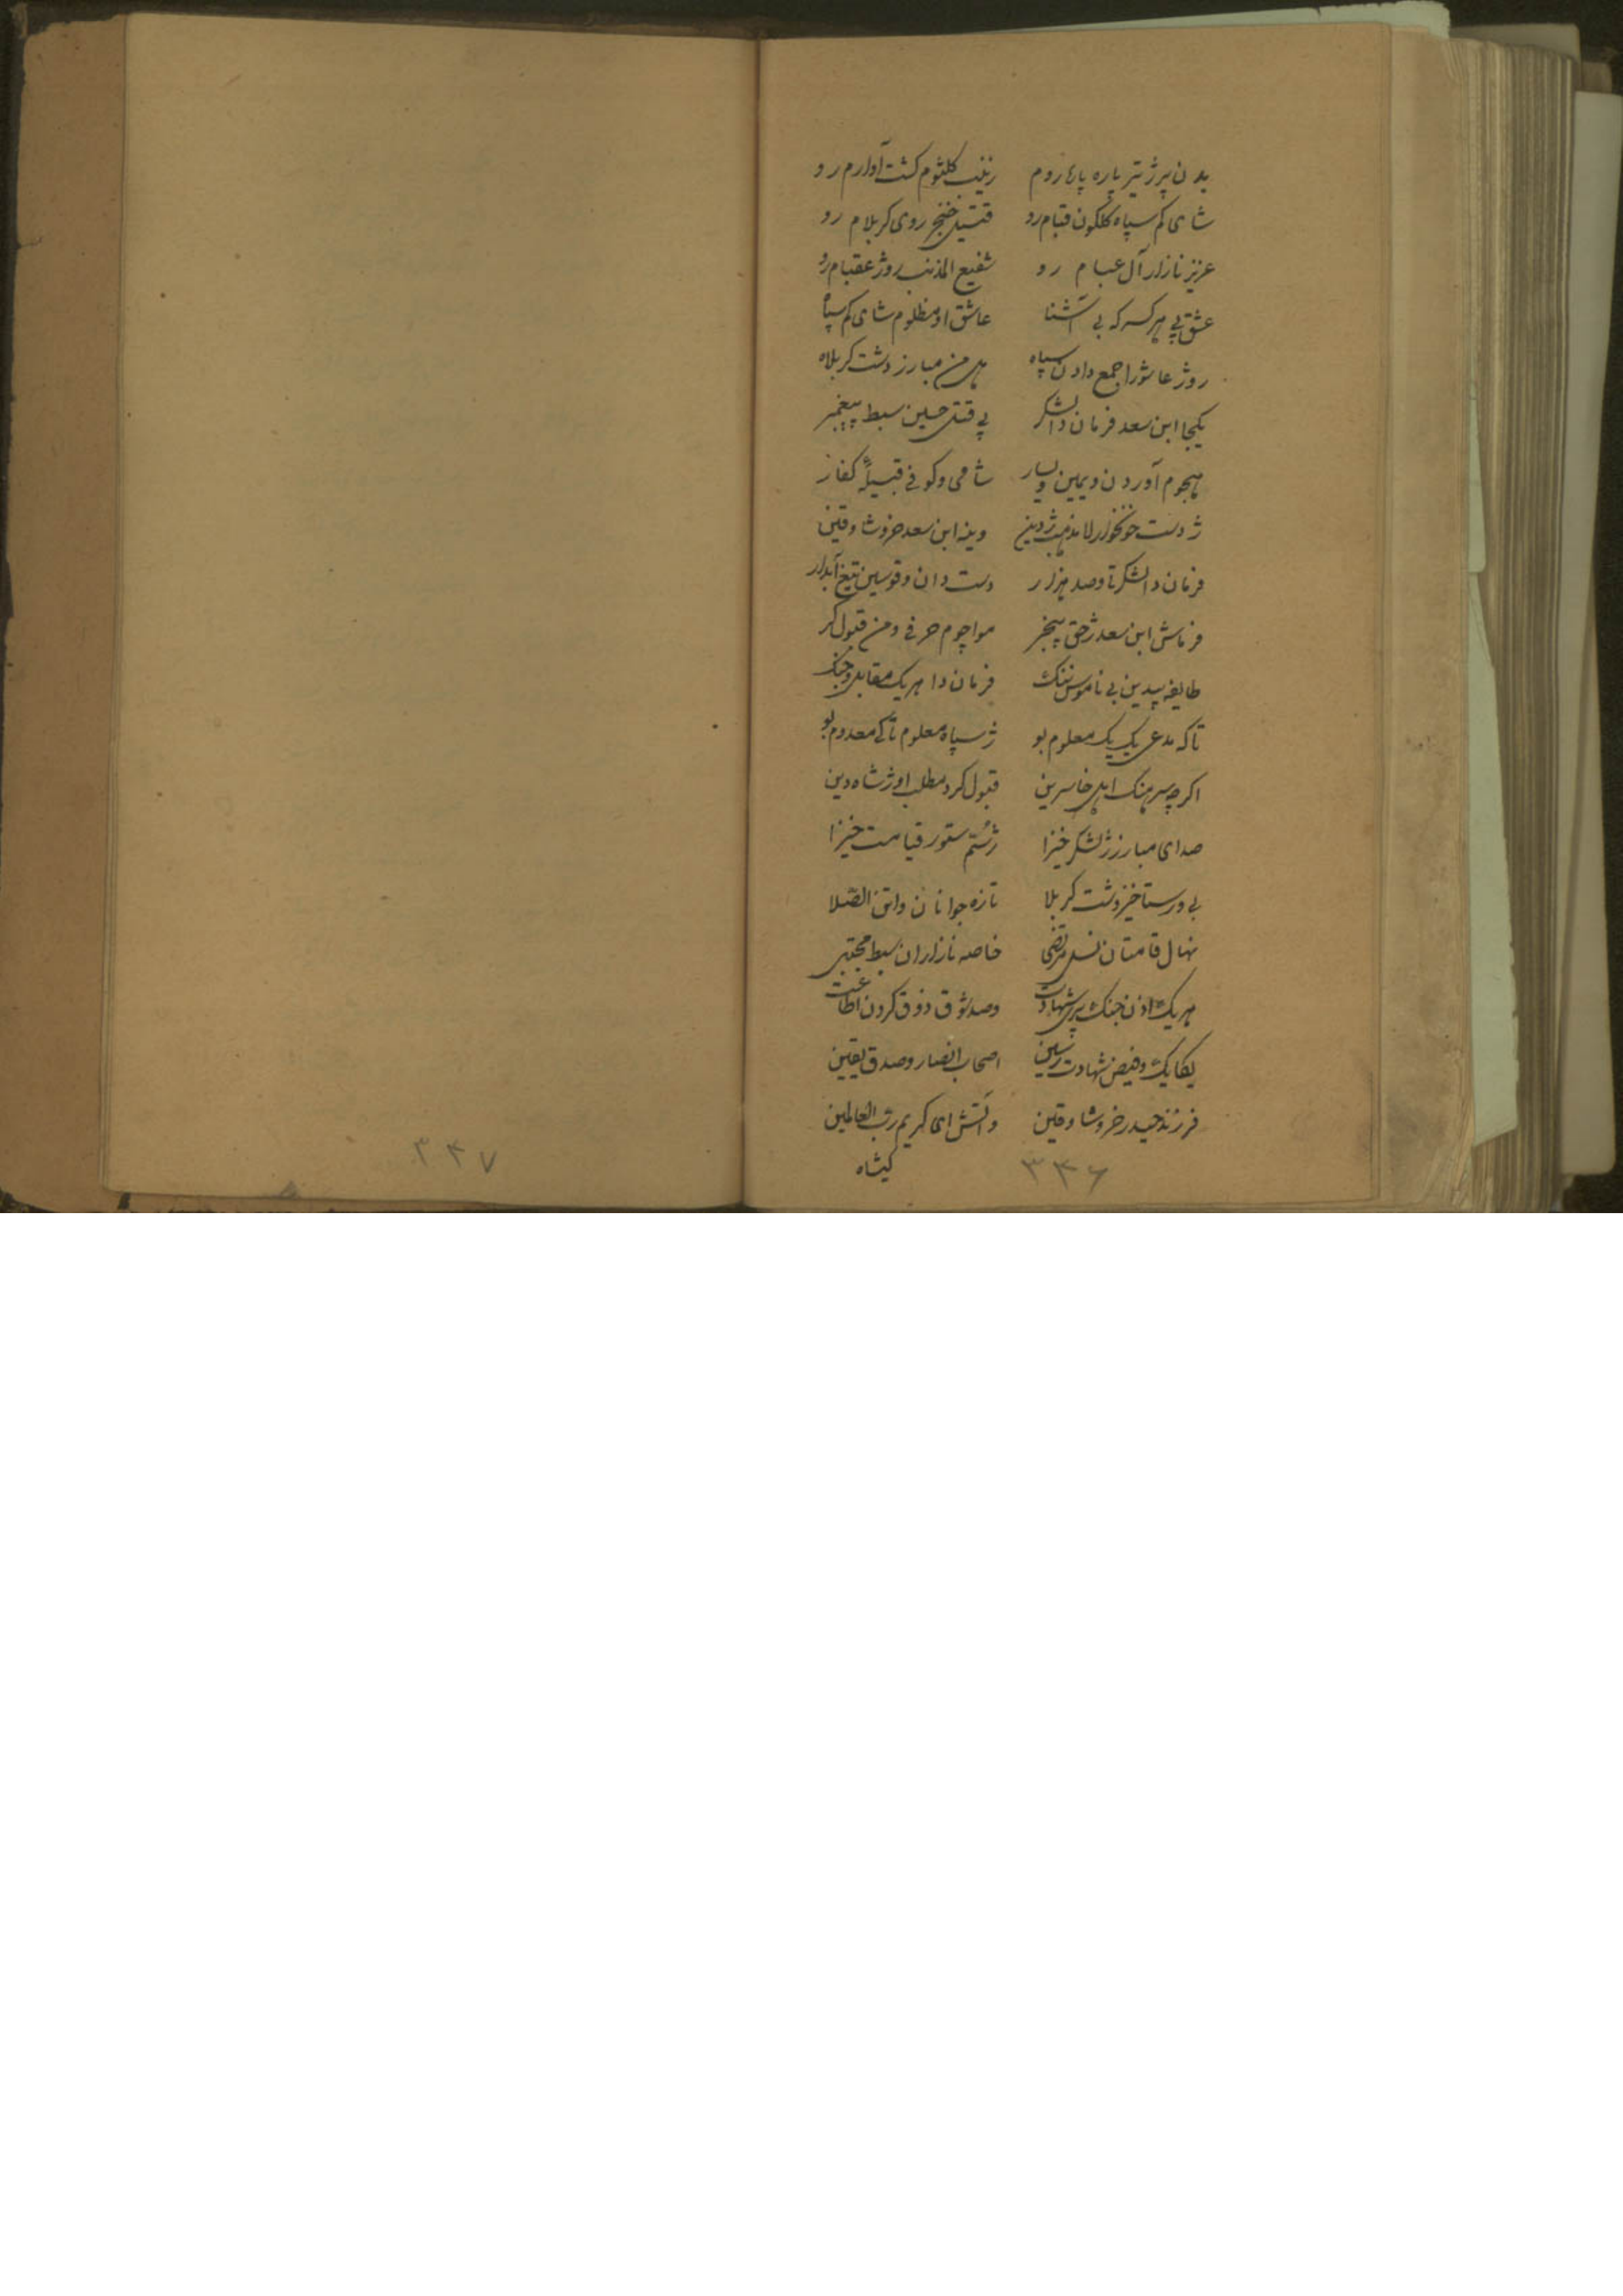 بدن پر ژ تیر پاره پارهٔ روم زینب کلثوم کشت آوارم رو
شای کم سپاه کلکون قبام رو قتیل خنجر روی کربلام رو
عزیز نازار آل عبام رو شفیع المذنب روژ عقبام رو
عشق پی هر کسه که بی آشنا عاشق او مظلوم شای کم سپاه
روژ عاشورا جمع دادن سپاه هل من مبارز دشت کربلاه
یکجا ابن سعد فرمان دا لشکر پی قتل حسین سبط پیغمبر
هجوم آوردن و یمین و یسار شامی و کوفی قبیلهٔ کفار
ژ دست خونخوار لا مذهب ژ دین وینه ابن سعد خروشا وقین
فرمان دا لشکر تا وصد هزار دست دان و قوسین تیغ آبدار
فرماش ابن سعد ژ حق بیخبر مواچوم حرفی و من قبول کر
طایفه بیدین بی ناموس ننک فرمان دا هر یک مقابل و جنک
تا که مدعی یک یک معلوم بو ژ سپاه معلوم تا کی معدوم بو
اکر چه سرهنک اهل خاسرین قبول کرد مطلب او ژ شاه دین
صدای مبارز ژ لشکر خیزا ژ سُتم ستور قیامت خیزا
بی و رستاخیز دشت کربلا تازه جوانان واتن الصّلا
نهال قامتان نسل مرتضی خاصه نازاران سبط مجتبی
هر یک اذن جنک پی شهادت وصد شوق ذوق کردن اطاعت
یکایک و فیض شهادت رسین اصحاب انصار و صدق یقین
فرزند حیدر خروشا وقین واتش ای کریم رب العالمین
کیشاه
۳۳۶
۳۳۷